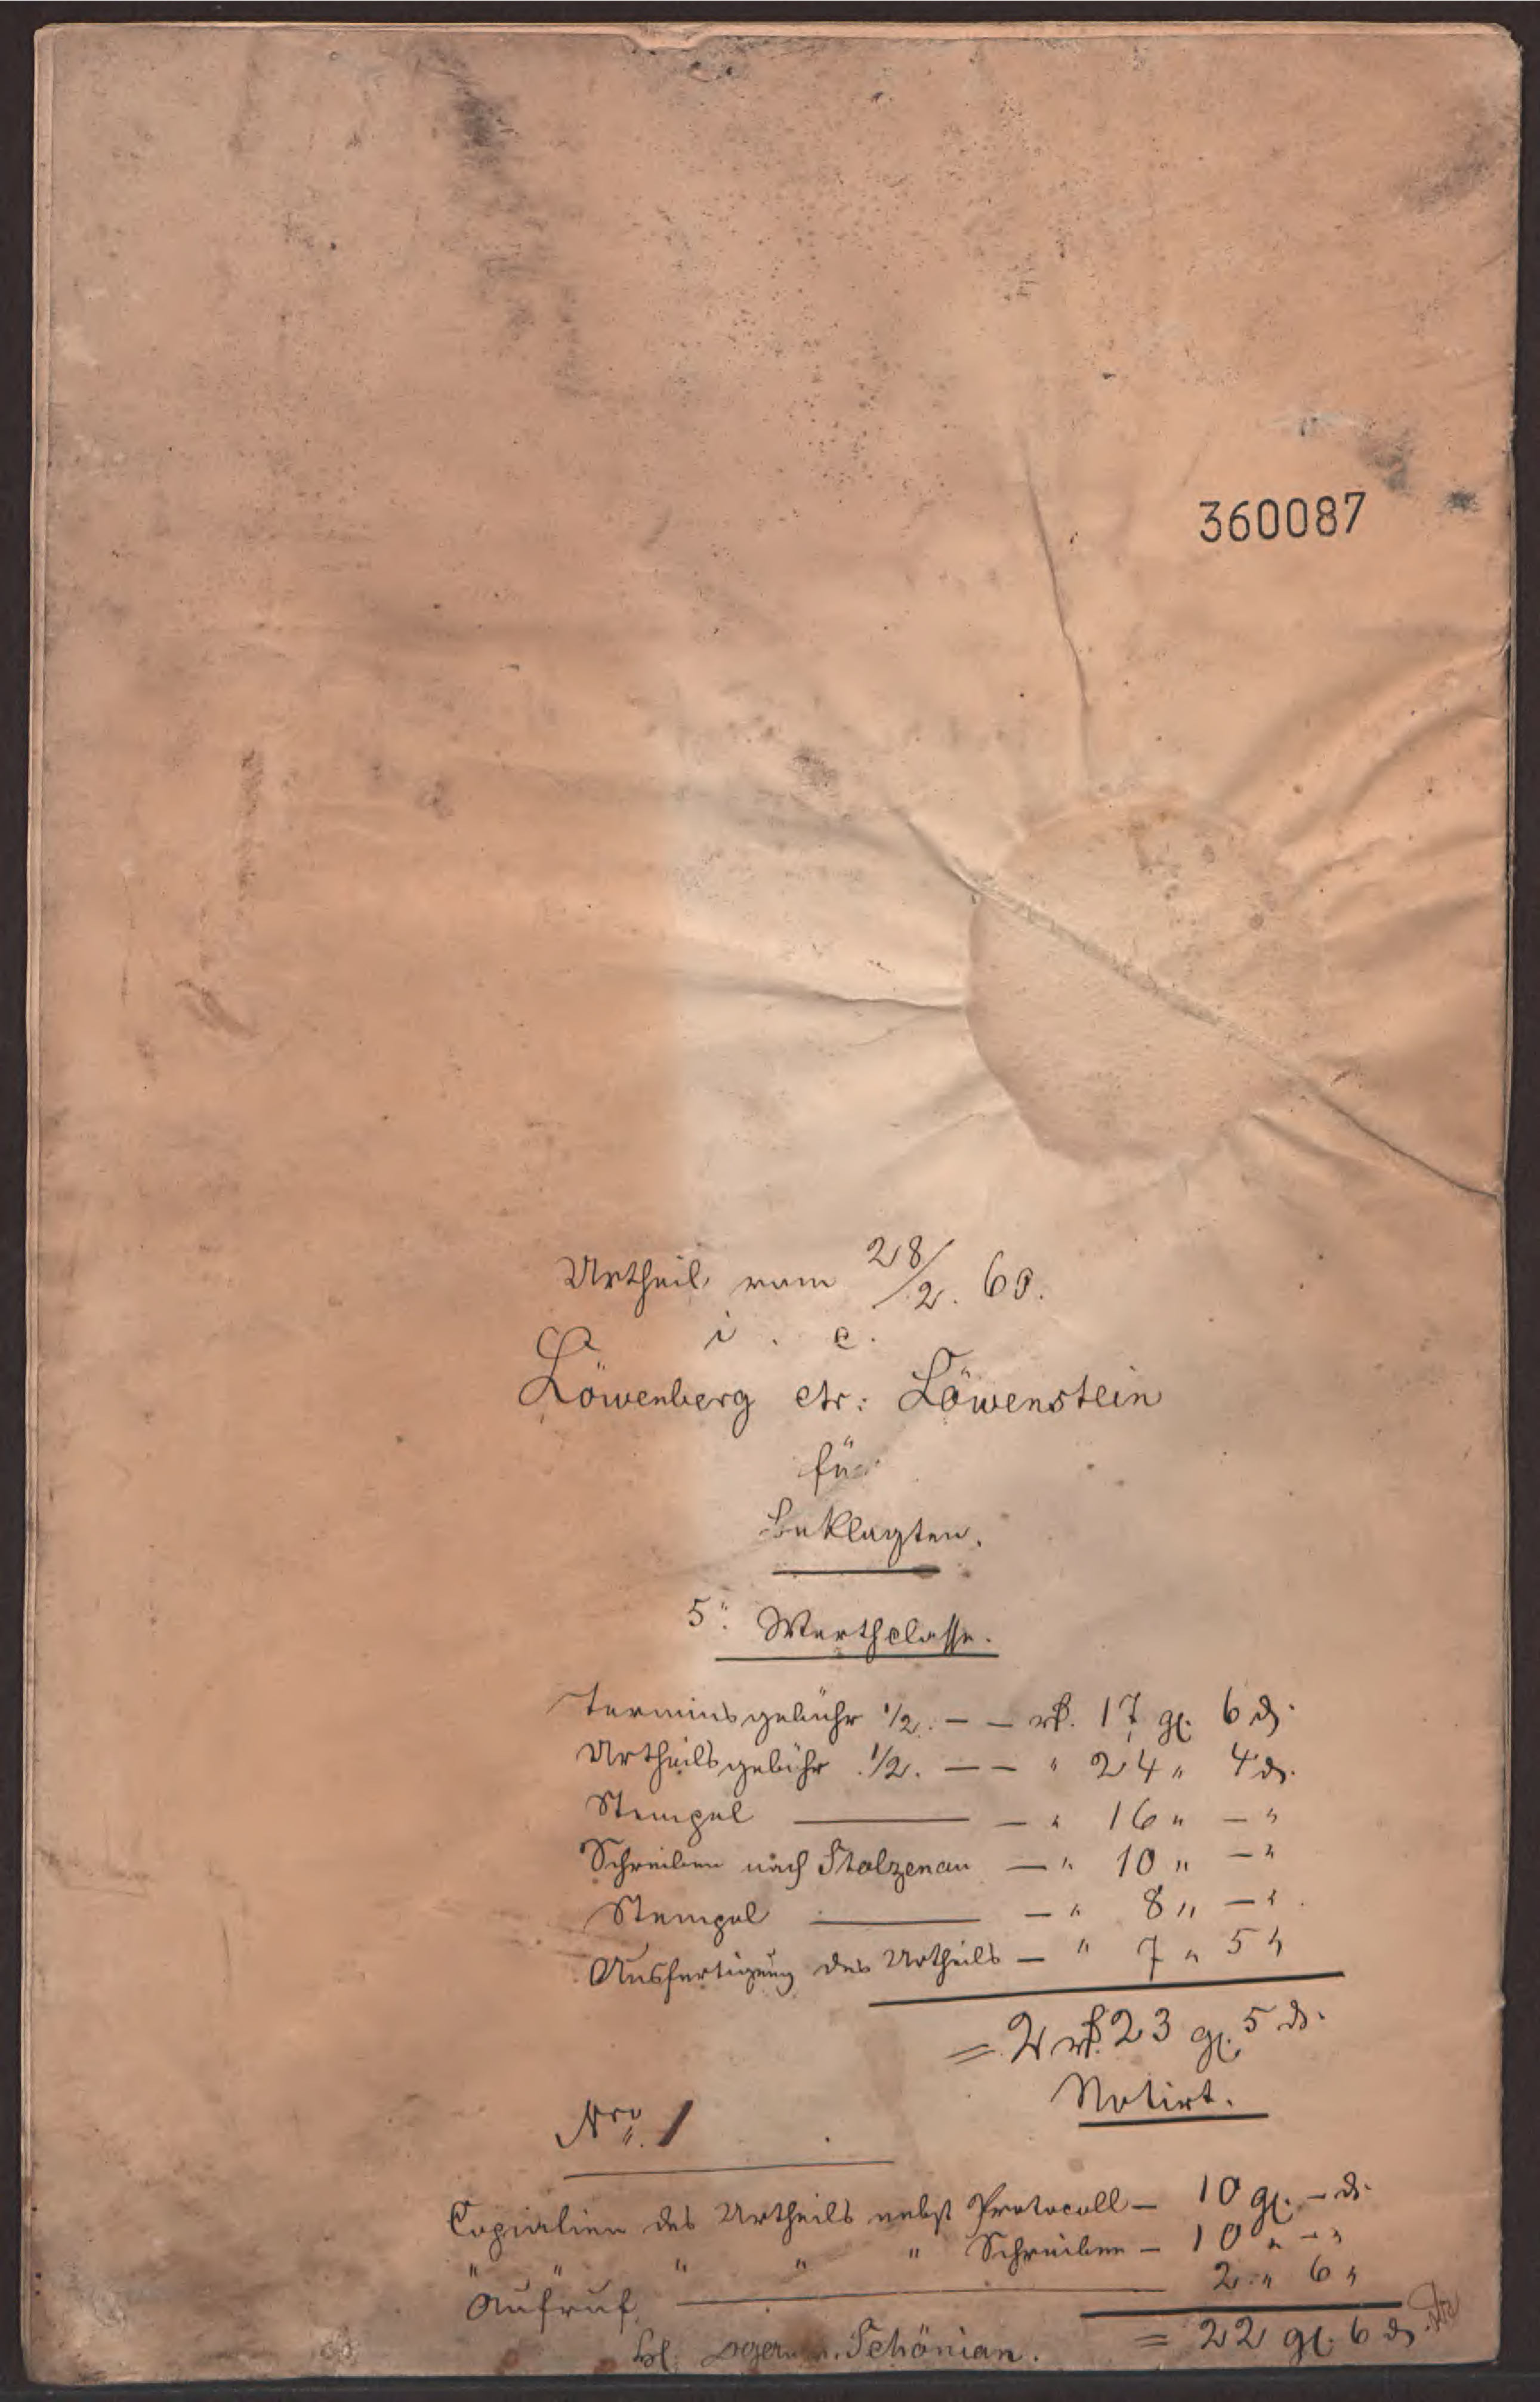 360087
Urtheil vom 28/2. 60.
i. c.
Löwenberg ctr: Löwenstein
für
Beklagten.
5". Werthclasse.
Terminsgebühr 1/2. — — rℓ. 17 gl. 6 ₰.
Urtheilsgebühr 1/2. — — " 24 " 4 ₰.
Stempel — — " 16 " — "
Schreiben nach Stolzenau — " 10 " — "
Stempel — — " 8 " — "
Ausfertigung des Urtheils — " 7 " 5 "
= 2 rℓ. 23 gl. 5 ₰.
Notirt.
Nro. 1
Copialien des Urtheils nebst Protocoll — 10 gl. — ₰.
" " " " " Schreiben — 10 " — "
Aufruf — 2 " 6 "
= 22 gl. 6 ₰.
Schönian.